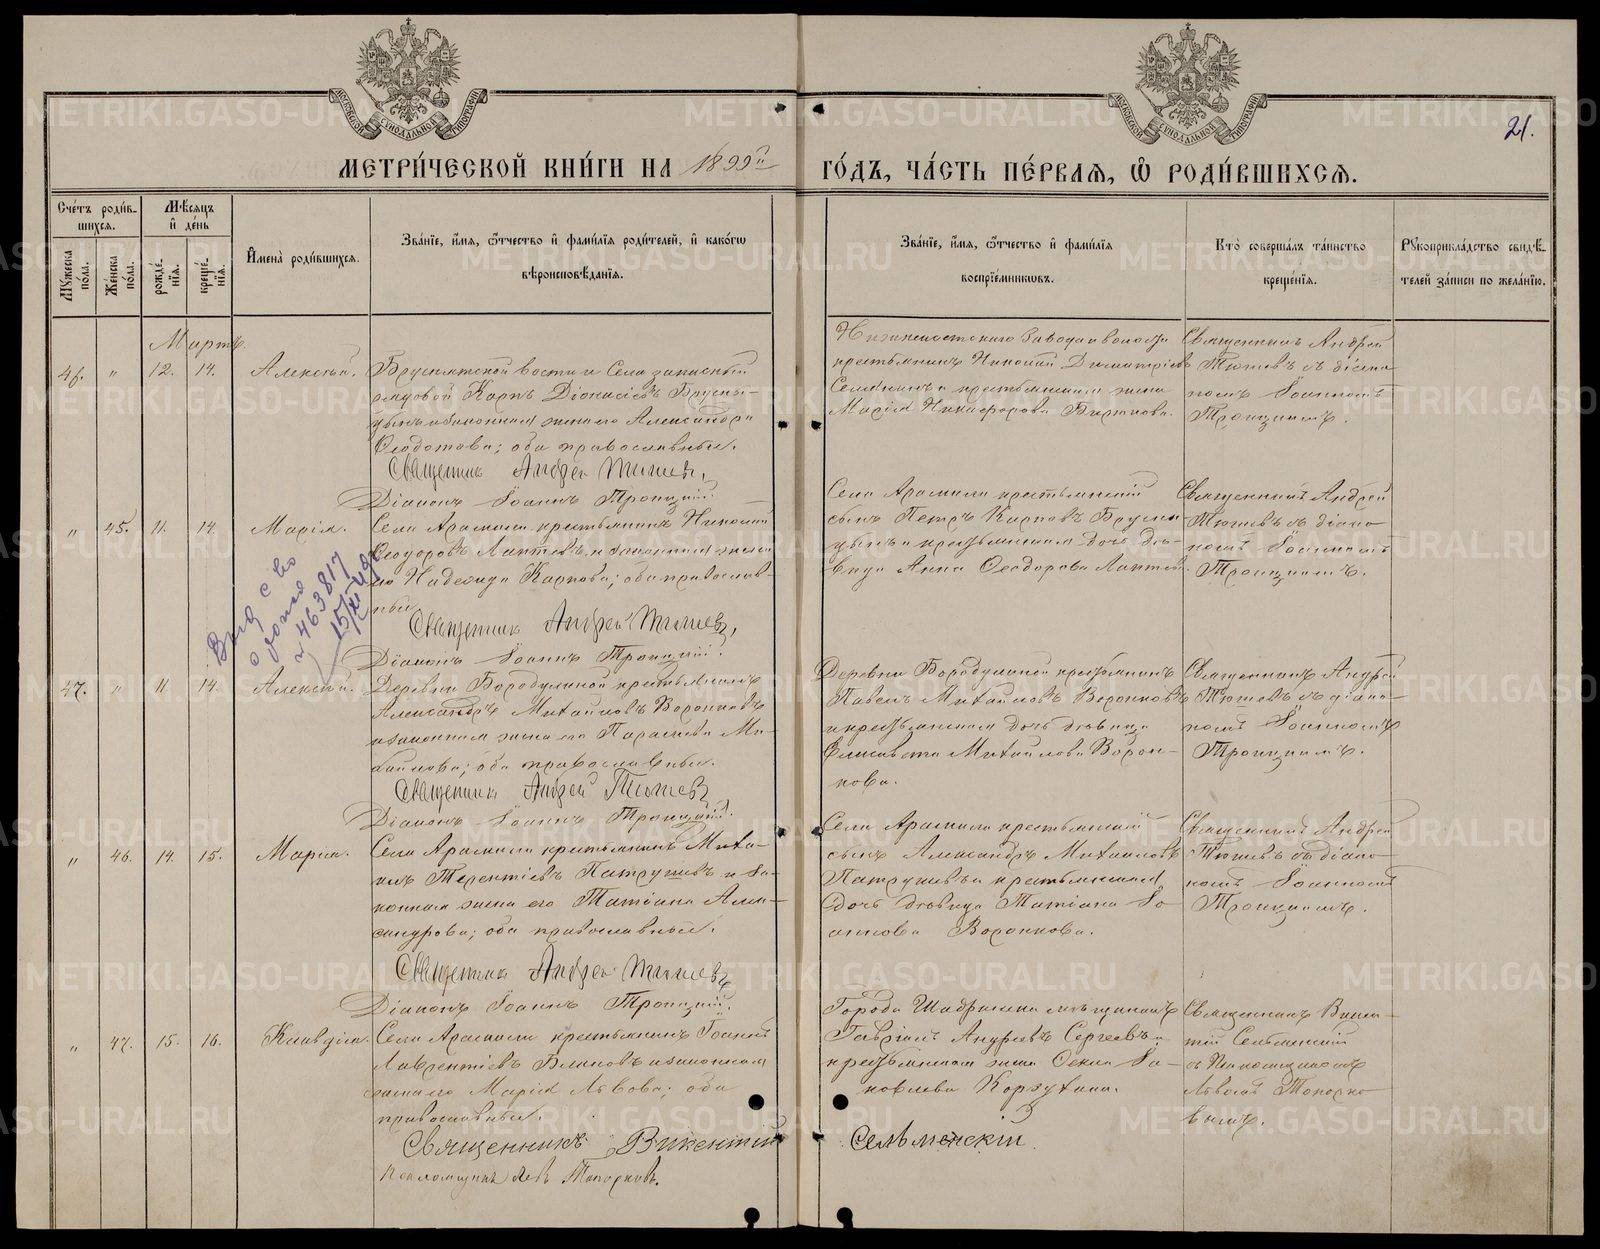 МОСКОВСКОЙ СѴНОДАЛЬНОЙ ТИПОГРАФІИ
МОСКОВСКОЙ СѴНОДАЛЬНОЙ ТИПОГРАФІИ
21.
МЕТРИ́ЧЕСКОЙ КНИ́ГИ НА 1899й ГО́ДЪ, ЧА́СТЬ ПЕ́РВАѦ, Ѡ҆ РОДИ́ВШИХСѦ.
Сче́тъ роди́в-
шихсѧ.
Мѣ́сѧцъ
и҆ де́нь
Мꙋ́жеска по́ла.
Же́нска по́ла.
рожде́-нїѧ.
креще́-нїѧ.
И҆мена̀ роди́вшихсѧ.
Зва́нїе, и҆́мѧ, ѻ҆́тчество и҆ фами́лїѧ роди́телей, и҆ како́гѡ
вѣроисповѣ́данїѧ.
Зва́нїе, и҆́мѧ, ѻ҆́тчество и҆ фами́лїѧ
воспрїе́мникѡвъ.
Кто̀ соверша́лъ та́инство
креще́нїѧ.
Рꙋкоприкла́дство свидѣ́-
телей за́писи по жела́нїю.
Мартъ.
46. " 12. 14. Алексѣй.
Брусятской вости и Села запасный
рядовой Карпъ Діонисіевъ Брусни-
цынъ и законная жена его Александра
Ѳеодотова; оба православные.
Священник Андрей Тюшев,
Діаконъ Іоаннъ Троицкій.
Нижнеисетскаго Завода и волости
крестьянинъ Николай Димитріевъ
и крестьянская жена
Марія Никифорова
Священникъ Андрей
Тюшевъ съ діако
номъ Іоанномъ
Троицкимъ.
" 45. 11. 14. Марія.
Села Арамили крестьянинъ Николай
Ѳеодоровъ Лаптевъ и законная жена
его Надежда Карпова; оба православ-
ные
Священник Андрей Тюшев,
Діаконъ Іоаннъ Троицкій.
Села Арамили крестьянскій
сынъ Петръ Карповъ Брусни
цынъ и крестьянская дочь дѣ-
вица Анна Ѳеодорова Лаптева.
Священникъ Андрей
Тюшевъ съ діако-
номъ Іоанномъ
Троицкимъ.
Выд с-во
463817
47. " 11. 14. Алексѣй.
Деревни Бородулиной крестьянинъ
Александръ Михайловъ Воронковъ
и законная жена его Параскева Ми-
хайлова; оба православные.
Священник Андрей Тюшев,
Діаконъ Іоаннъ Троицкій.
Деревни Бородулиной крестьянинъ
Павелъ Михайловъ Воронковъ
и крестьянская дочь дѣвица
Елисавета Михайлова Ворон-
кова.
Священникъ Андрей
Тюшевъ съ діако-
номъ Іоанномъ
Троицкимъ.
" 46. 14. 15. Марія.
Села Арамили крестьянинъ Миха-
илъ Терентіевъ Патрушевъ и за-
конная жена его Татіана Алек-
сандрова; оба православные.
Священник Андрей Тюшев,
Діаконъ Іоаннъ Троицкій.
Села Арамили крестьянскій
сынъ Александръ Михайловъ
Патрушевъ и крестьянская
дочь дѣвица Татіана Іо
аннова Воронкова.
Священникъ Андрей
Тюшевъ съ діако-
номъ Іоанномъ
Троицкимъ.
" 47. 15. 16. Клавдія.
Села Арамили крестьянинъ Іоаннъ
Лаврентіевъ и законная
жена его Марія Львова; оба
православные.
Священникъ Викентій Сельменскій
Псаломщикъ Левъ Топорковъ.
Города Шадринска мѣщанинъ
Гавріилъ Андреевъ Сергеевъ и
крестьянская жена Ѳекла Іа-
ковлева
Священникъ Викен-
тій Сельменскій
съ Псаломщикомъ
Львомъ Топорко
вымъ.
METRIKI.GASO-URAL.RU